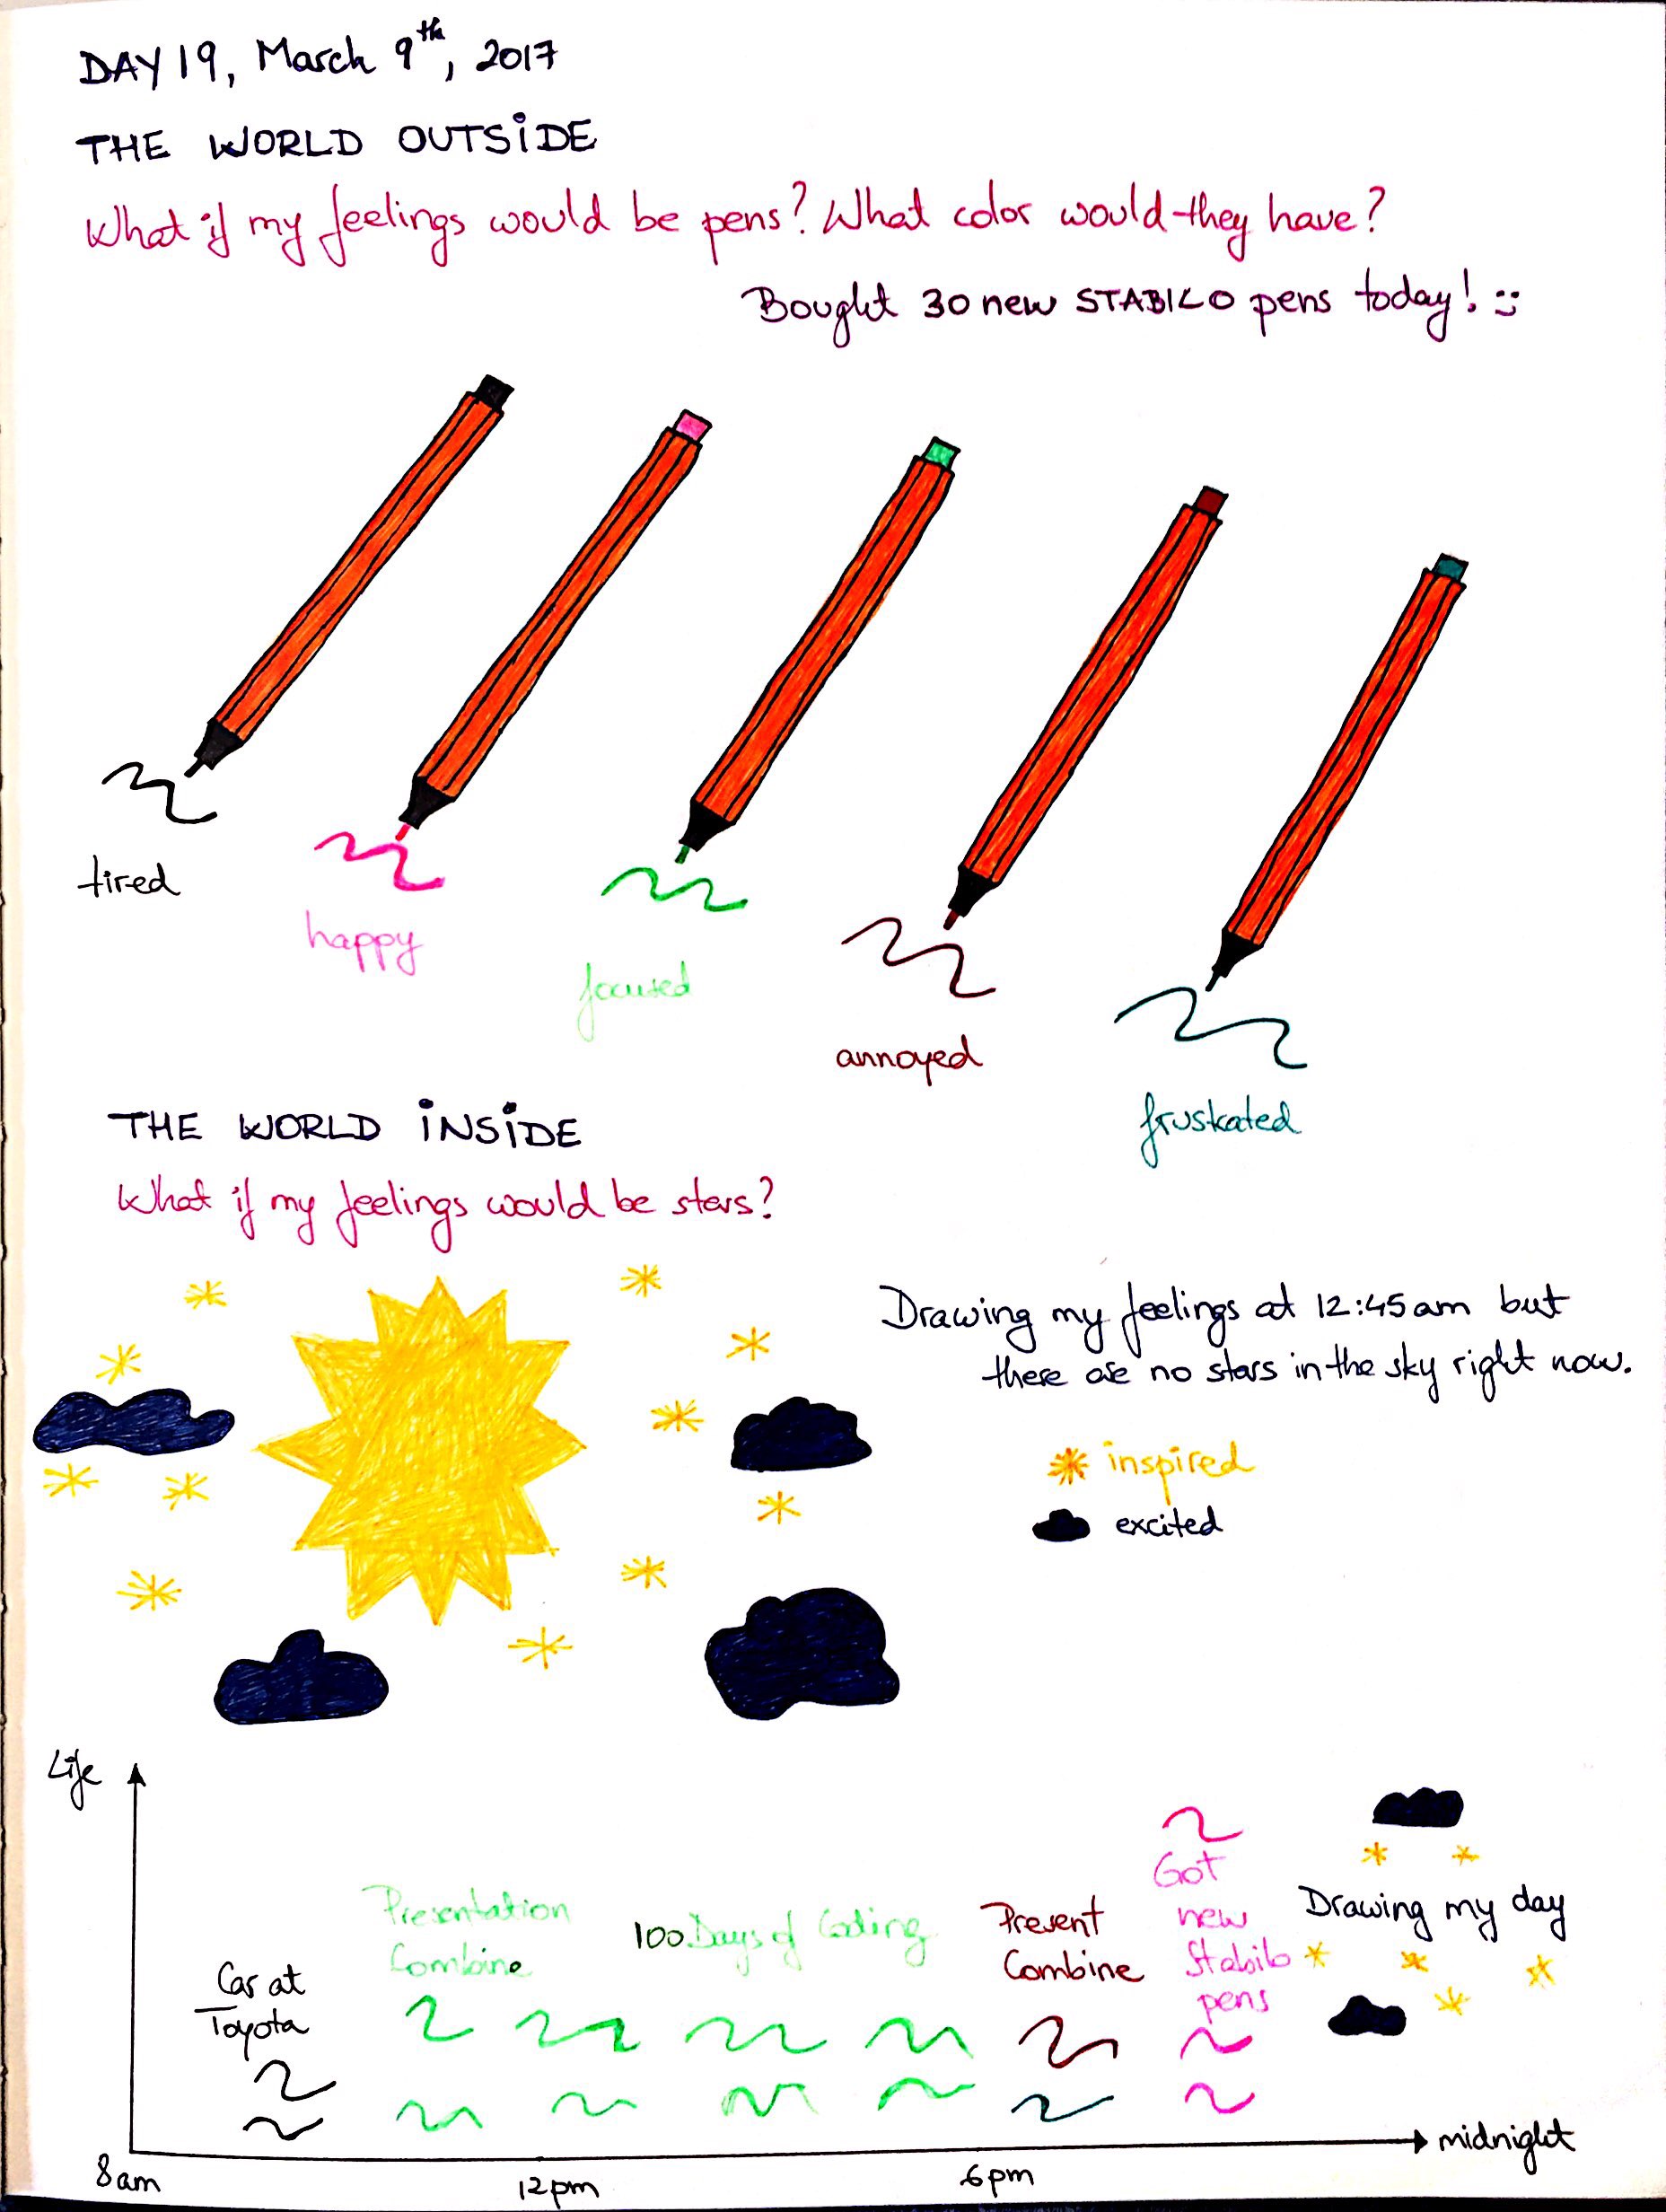 DAY 19, March 9th, 2017
THE WORLD OUTSIDE
What if my feelings would be pens? What color would they have?
Bought 30 new STABILO pens today! :)
tired
happy
focused
annoyed
frustrated
THE WORLD INSIDE
What if my feelings would be stars?
Drawing my feelings at 12:45am but
there are no stars in the sky right now.
inspired
excited
Life
Car at
Toyota
Presentation
Combine
100 Days of Coding
Present
Combine
Got
new
Stabilo
pens
Drawing my day
8am
12pm
6pm
midnight